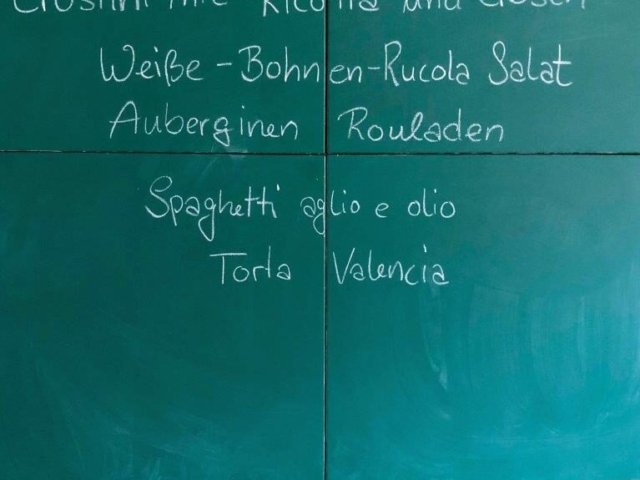 Crostini mit Ricotta und
Weiße-Bohnen-Rucola Salat
Auberginen Rouladen
Spaghetti aglio e olio
Torta Valencia